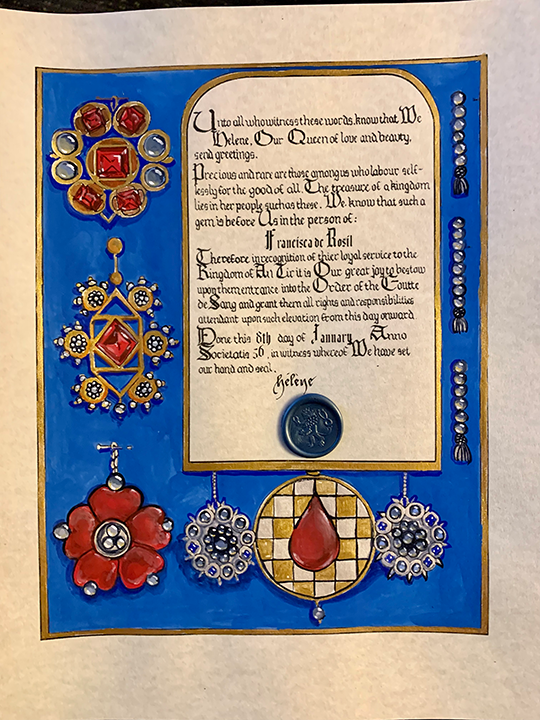 Unto all who witness these words, know that We
Helene, Our Queen of love and beauty,
send greetings.
Precious and rare are those among us who labour self-
lessly for the good of all. The treasure of a kingdom
lies in her people such as these. We know that such a
gem is before Us in the person of:
Francisca de Rosil
Therefore in recognition of thier loyal service to the
Kingdom of An Tir it is Our great joy to bestow
upon them entrance into the Order of the Goutte
de Sang and grant them all rights and responsibilities
attendant upon such elevation from this day onward.
Done this 8th day of January Anno
Societatis 56, in witness whereof We have set
our hand and seal.
Hélène